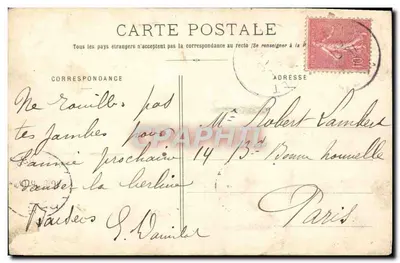 CARTE POSTALE
Tous les pays étrangers n'acceptent pas la correspondance au recto (Se renseigner à la
CORRESPONDANCE
ADRESSE
Ne rouillez pas
tes jambes pour
l'année prochaine
danser la berline
Mr Robert Lambert
14 Bd Bonne nouvelle
Paris
CPAPHIL